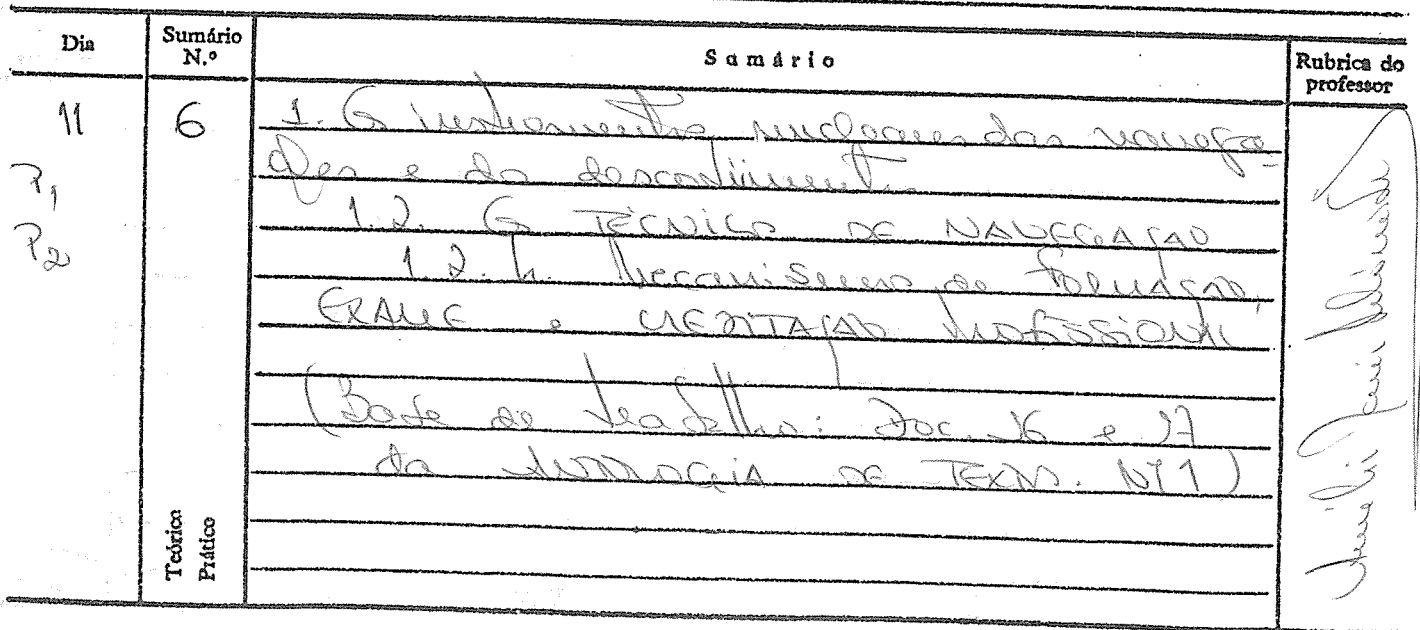 Dia
Sumário N.º
Sumário
Rubrica do professor
11
6
P1
P2
1. Os instrumentos nucleares das navega-
ções e do descobrimento
1.2. O TÉCNICO DE NAVEGAÇÃO
1.2.1. Mecanismos de FORMAÇÃO,
EXAME e CREDITAÇÃO PROFISSIONAL
(Base de trabalho: Doc. 16 e 17
da ANTOLOGIA DE TEXTOS. Nº 1)
Teórico
Prático